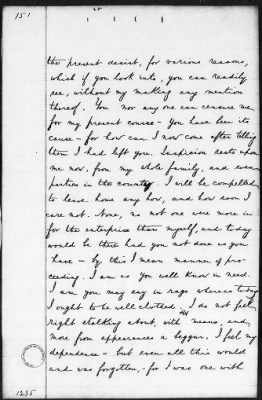 151
the present desist, for various reasons,
which if you look into, you can readily
see, without my making any mention
thereof. You nor any one can censure me
for my present course - You have been its
cause - for how can I now come after telling
them I had left you. Suspicion rests upon
me now, from my whole family, and even
parties in the country. I will be compelled
to leave home any how, and how soon I
care not. None, no not one were more in
for the enterprise than myself, and today
would be there had you not done as you
have - by this I mean manner of pro-
ceeding. I am as you well know in need.
I am you may say in rags whereas today
I ought to be well clothed. I do not feel
right stalking about, with means, and,
more from appearances a beggar. I feel my
dependence - but even all this would
and was forgotten, for I was one with
1235